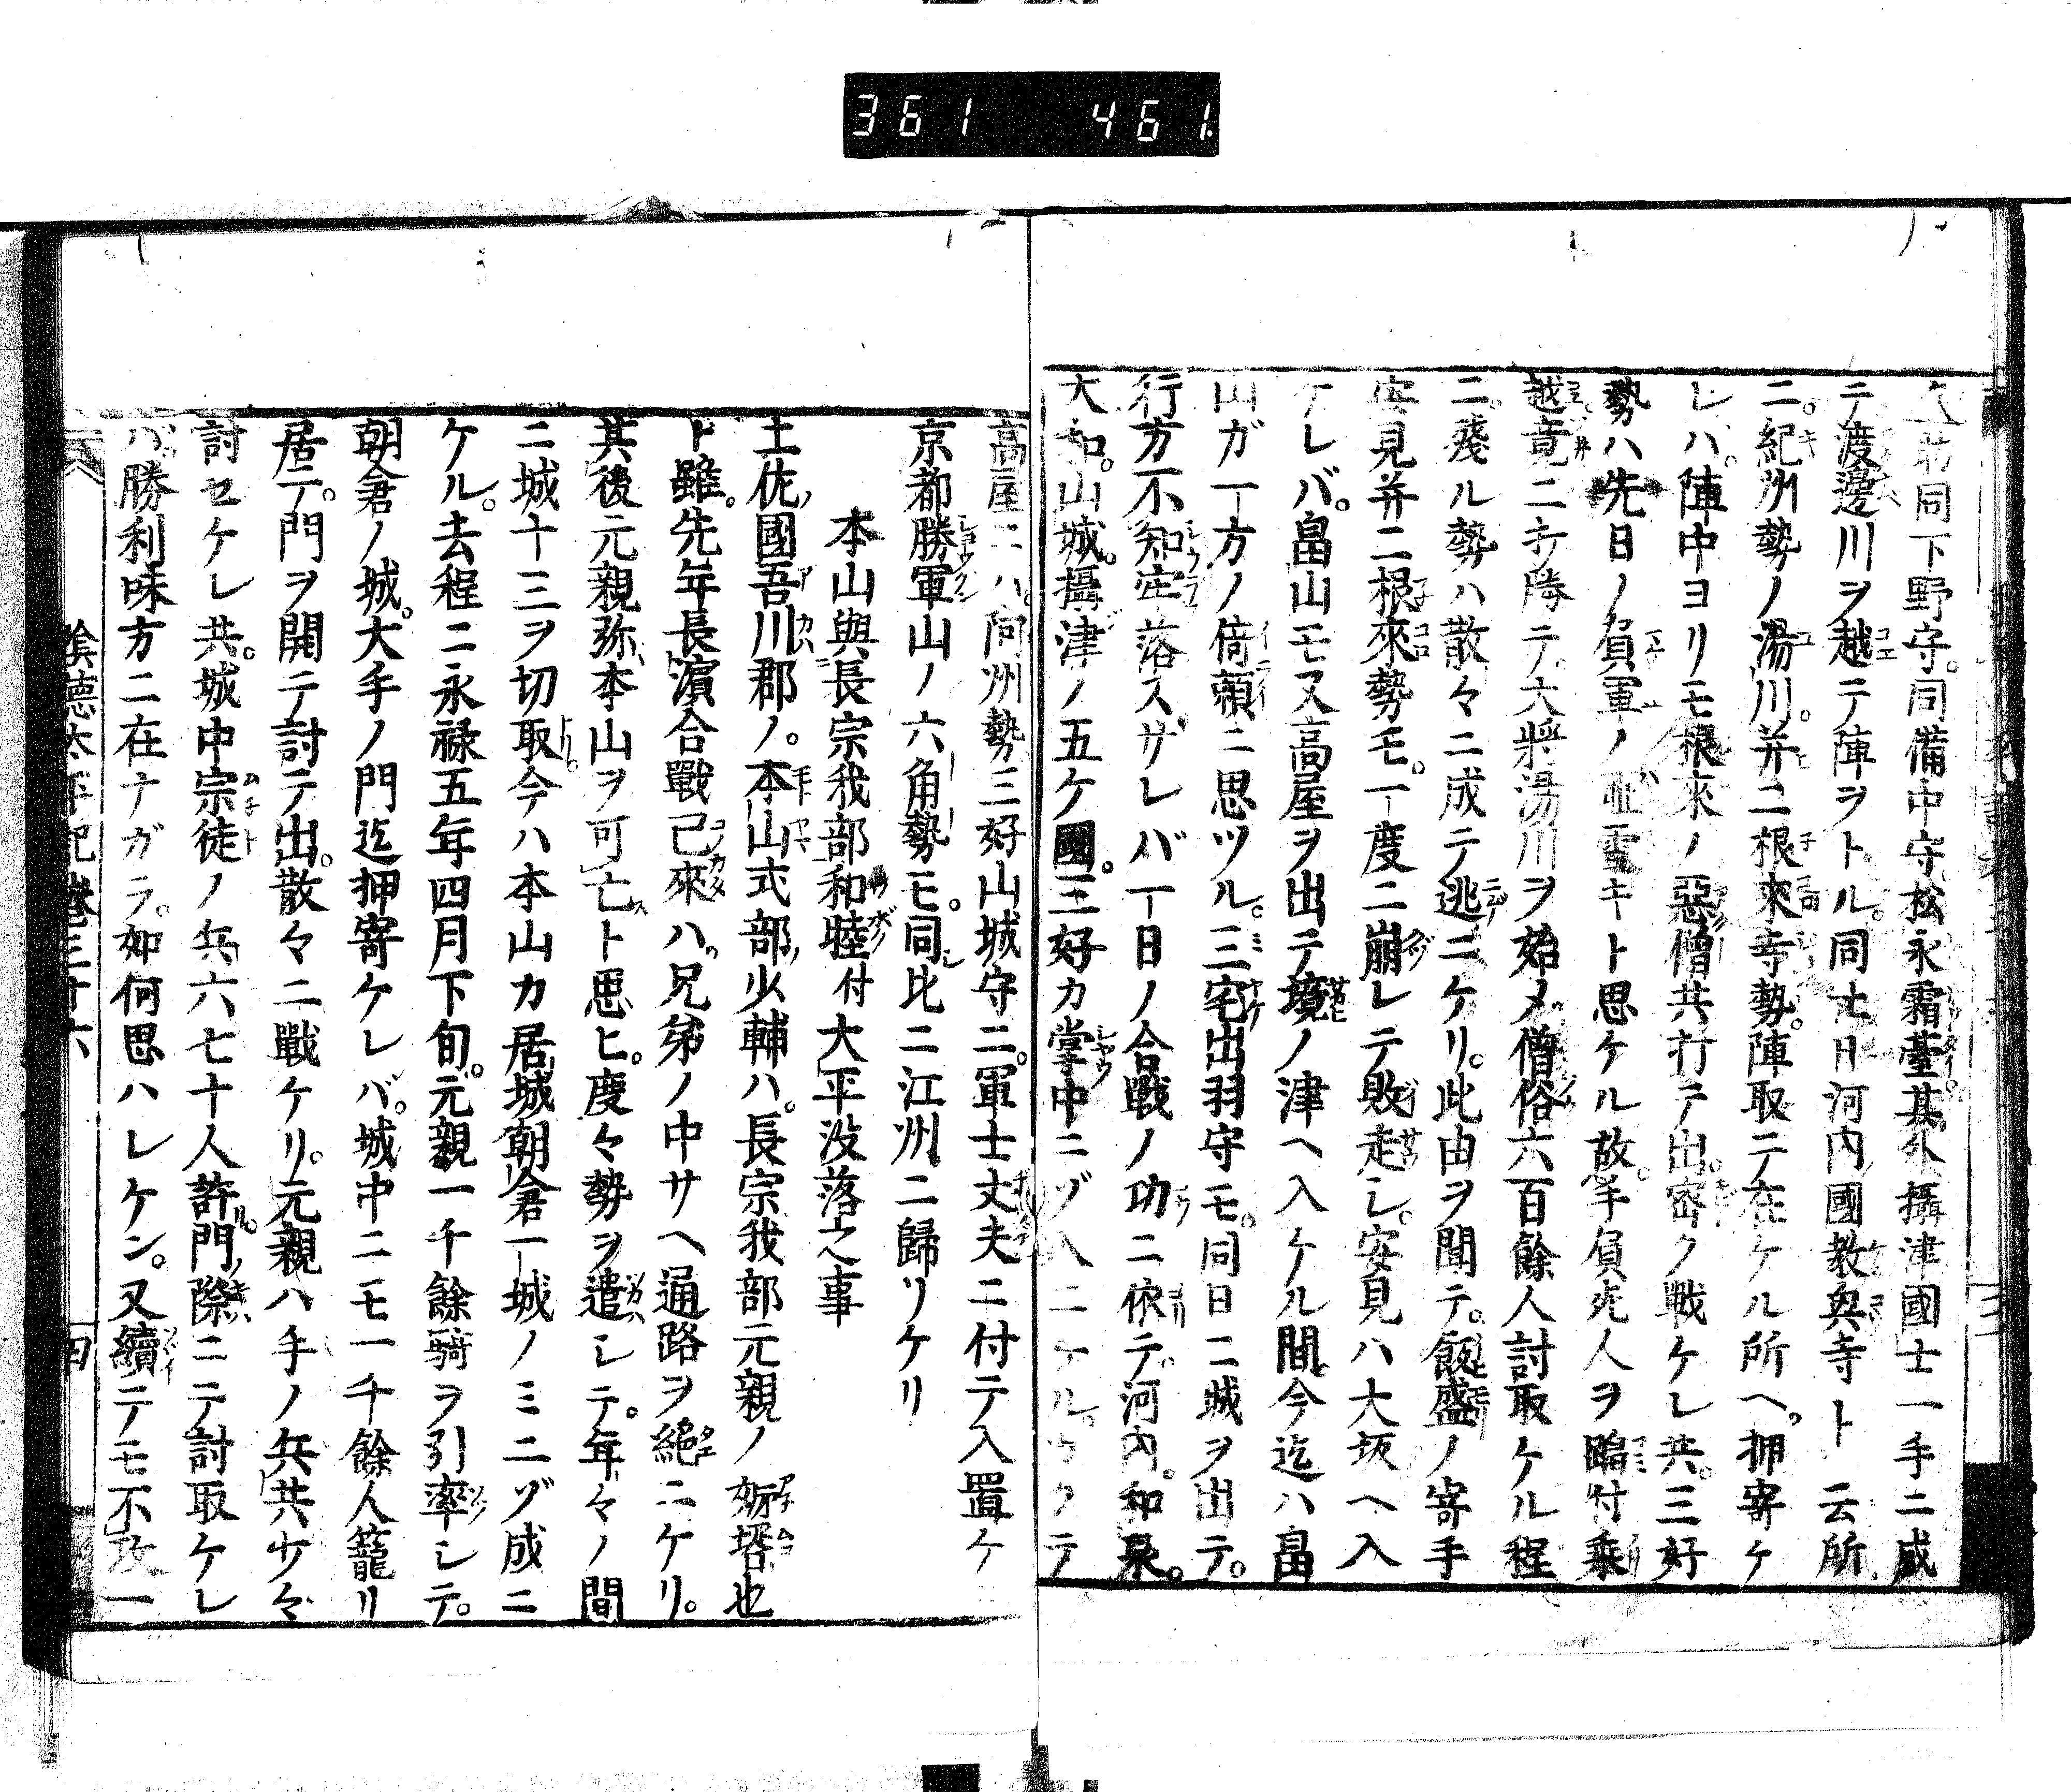 361 461
同下野守。同備中守松永霜臺。其外攝津國士一手ニ成
テ渡邊川ヲ越テ陣ヲトル。同廿日河内國教興寺ト云所
ニ。紀州勢ノ湯川。并ニ根來寺勢。陣取テ在ケル所ヘ。押寄ケ
レハ。陣中ヨリモ根來ノ惡僧共打テ出。密ク戰ケレ共。三好
勢ハ先日ノ負軍ノ耻雪キト思ケル故。手負死人ヲ踏付乘
越竟ニ土手ヲ
ニ。殘ル勢ハ散々ニ成テ逃ニケリ。此由ヲ聞テ。飯盛ノ寄手
安見并ニ根來勢モ。一度ニ崩レテ敗走シ。安見ハ大坂ヘ入
ケレバ。畠山モ又高屋ヲ出テ境ノ津ヘ入ケル間今迄ハ畠
山ガ一方ノ倚頼ニ思ツル。三宅出羽守モ。同日ニ城ヲ出テ。
行方不知牢落ス。サレバ一日ノ合戰ノ功ニ依テ。河内。和泉。
大和。山城。攝津ノ五ケ國。三好カ掌中ニゾ入ニケル。カクテ
高屋ニハ。阿州勢三好山城守ニ。軍士丈夫ニ付テ入置ケ
京都勝軍山ノ六角勢モ。同比ニ江州ニ歸リケリ
本山與長宗我部和睦付大平没落之事
土佐國吾川郡ノ。本山式部少輔ハ。長宗我部元親ノ姉壻也
ト雖。先年長濱合戰己來ハ。兄弟ノ中サヘ通路ヲ絶ニケリ。
其後元親弥本山ヲ可亡ト思ヒ。度々勢ヲ遣シテ。年々ノ間
ニ城十三ヲ切取。今ハ本山カ居城朝倉一城ノミニゾ成ニ
ケル。去程ニ永禄五年四月下旬。元親一千餘騎ヲ引率シテ。
朝倉ノ城。大手ノ門迄押寄ケレバ。城中ニモ一千餘人籠リ
居テ。門ヲ開テ討テ出。散々ニ戰ケリ。元親ハ手ノ兵共少々
討セケレ共。城中宗徒ノ兵六七十人許。門ノ際ニテ討取ケレ
バ。勝利味方ニ在ナガラ。如何思ハレケン。又續テモ不攻一
陰徳太平記 巻三十六 四